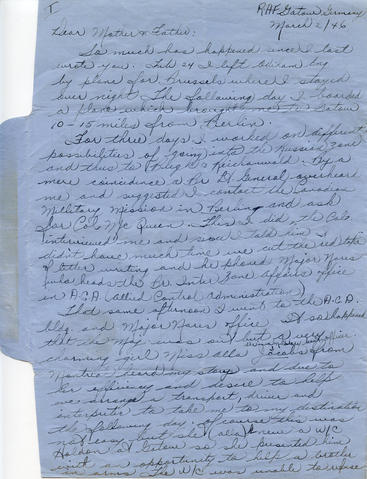 I
RAF Gatow Germany
March 2/46
Dear Mother & Father:
So much has happened since I last
wrote you. Feb 24 I left
by plane for Brussels where I stayed
over night. The following day I boarded
a plane which brought me to Gatow
10-15 miles from Berlin.
For three days I worked on different
possibilities of going into the Russian Zone
and thus to Reichenwald. By a
mere coincidence a Br. General overheard
me and suggested I contact the Canadian
Military Mission in Berlin and ask
for Col. McQueen. This I did, the Col.
interviewed me and since I told him I
didn't have much time we cut the red tape
of letter writing and he phoned Major Nares
who heads the Br. Inter Zone Affairs office
in A.C.A. (Allied Control Administration)
That same afternoon I went to the A.C.A.
bldg. and Major Nares office. It so happened
that the Maj. was out but a very
charming girl Miss Alla Jacobs from
heard my story and due to
her efficiency and desire to help
me arrange a transport, driver and
interpreter to take me to my destination
the following day. Of course this was
not easy but she (Alla) knew a W/C
at Gatow so she presented him
with an opportunity to help a brother
in arms. The W/C was unable to